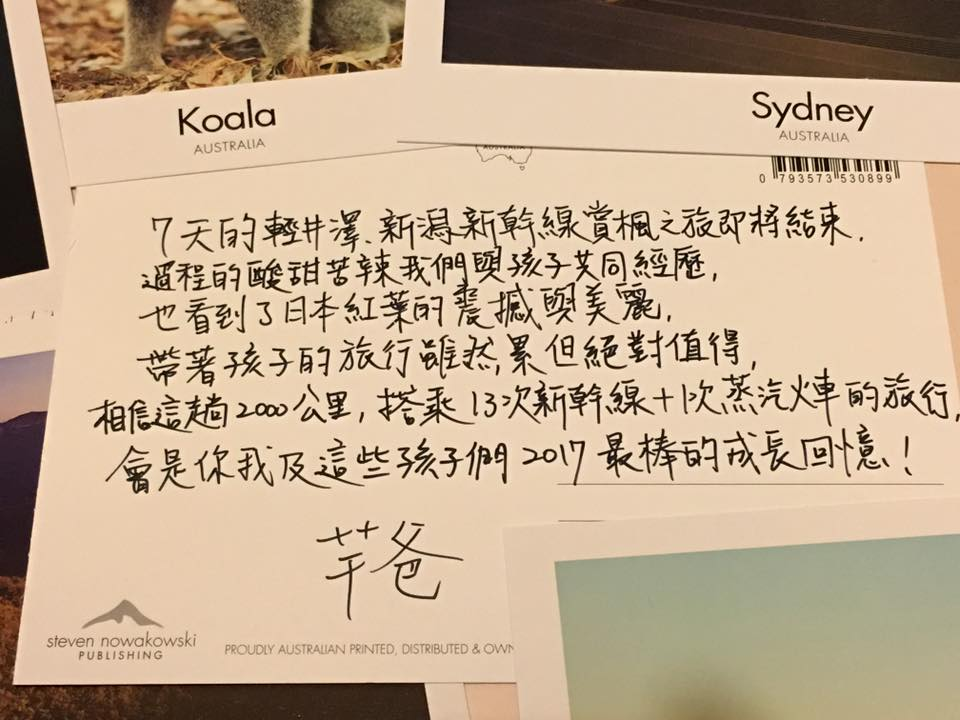 Koala
AUSTRALIA
Sydney
AUSTRALIA
AUSTRALIA
0 793573 530899
7天的輕井澤、新潟新幹線賞楓之旅即將結束,
過程的酸甜苦辣我們與孩子共同經歷,
也看到了日本紅葉的震撼與美麗,
帶著孩子的旅行雖然累但絕對值得,
相信這趟2000公里,搭乘13次新幹線+1次蒸汽火車的旅行,
會是你我及這些孩子們2017最棒的成長回憶!
芊爸
steven nowakowski
PUBLISHING
PROUDLY AUSTRALIAN PRINTED, DISTRIBUTED & OWN